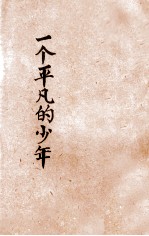 一个平凡的少年